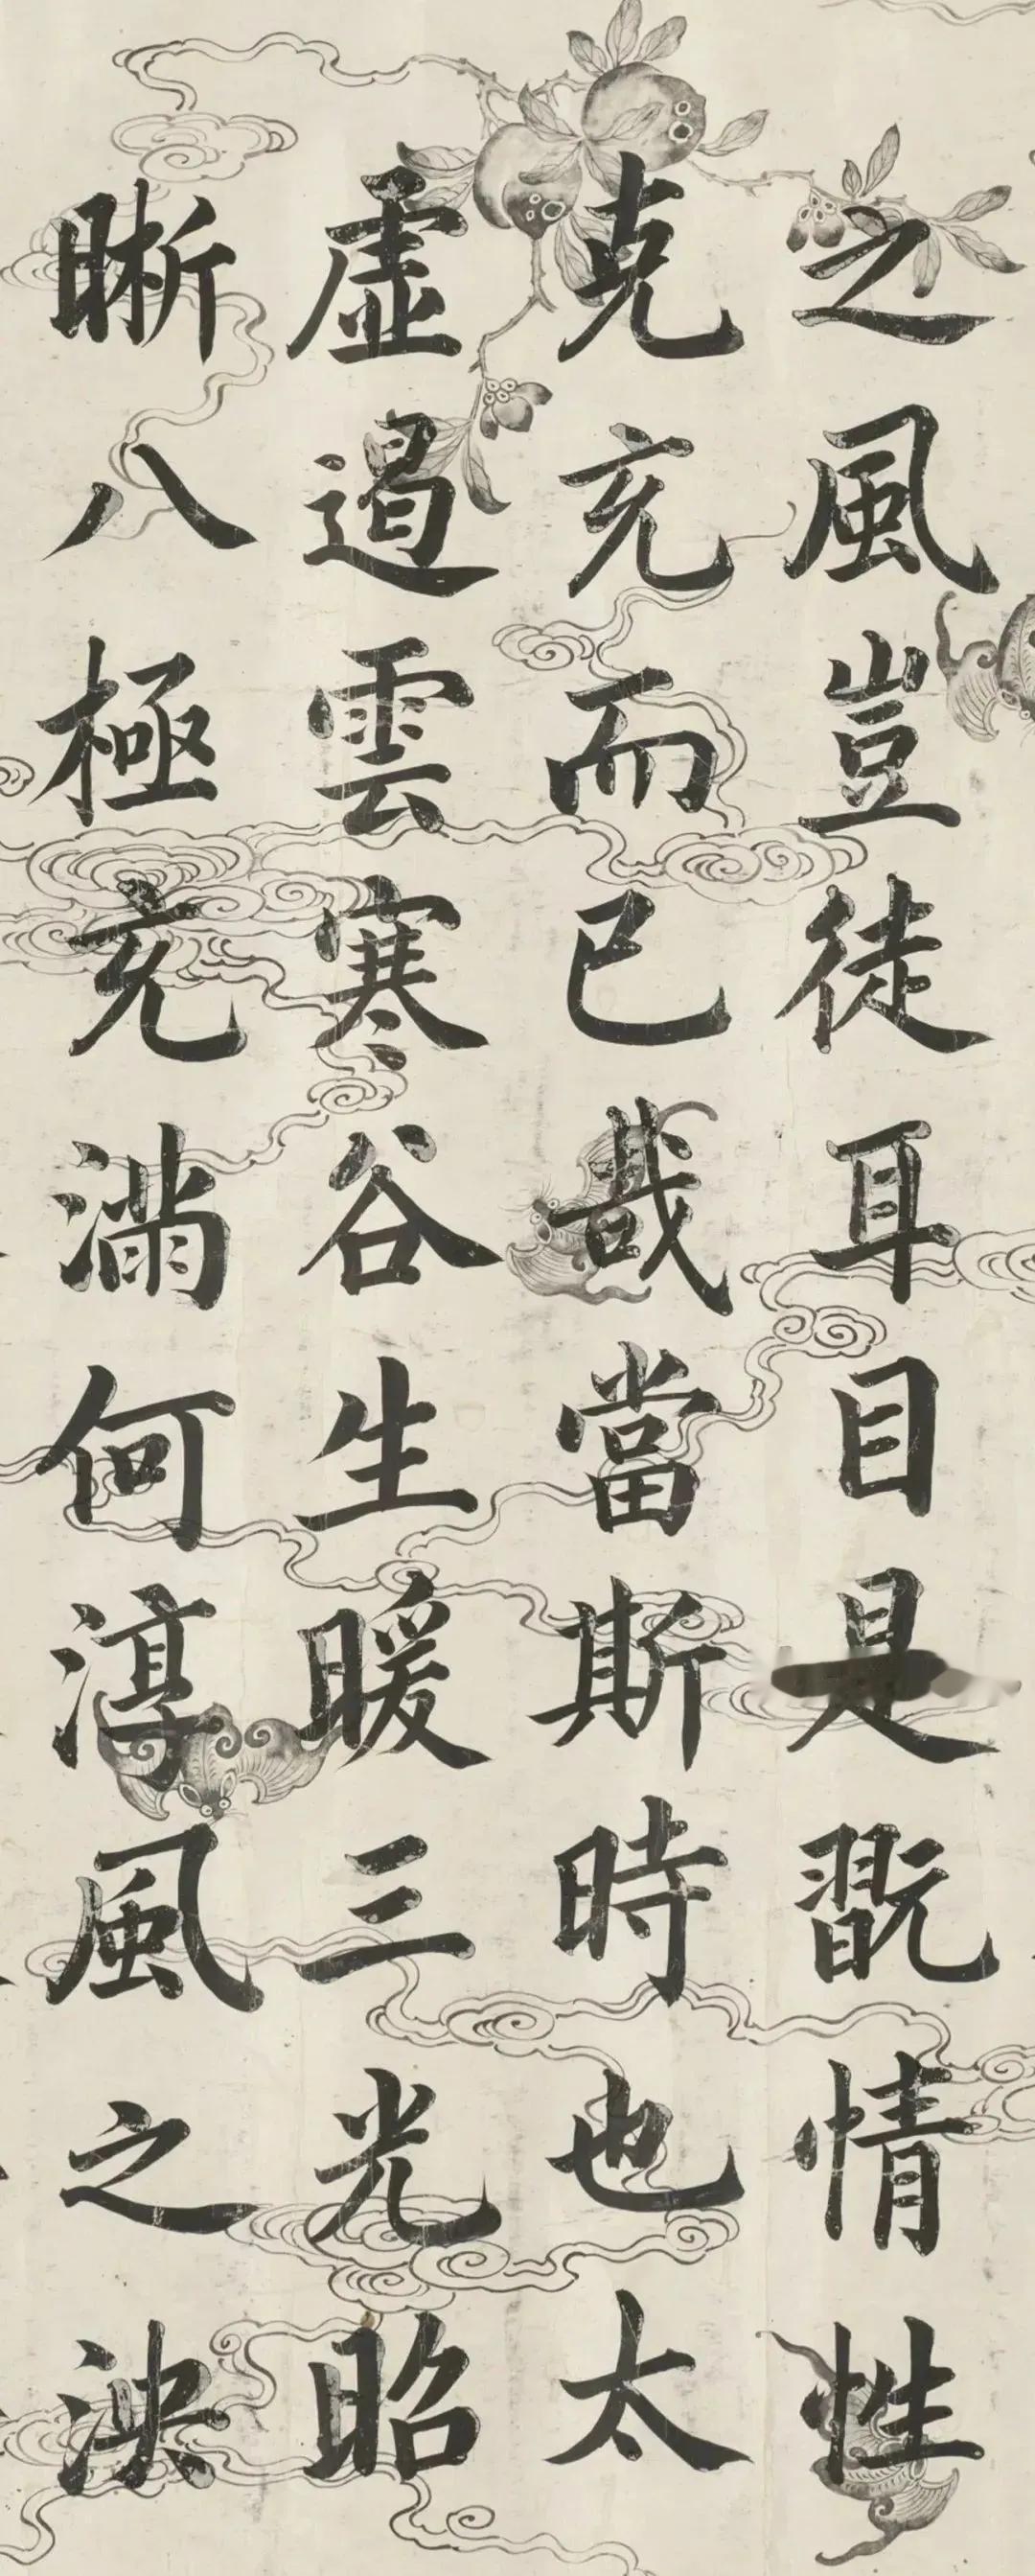 之風豈徒耳目是翫情性
克充而已哉當斯時也太
虛遏雲寒谷生暖三光昭
晰八極充滿何淳風之泱